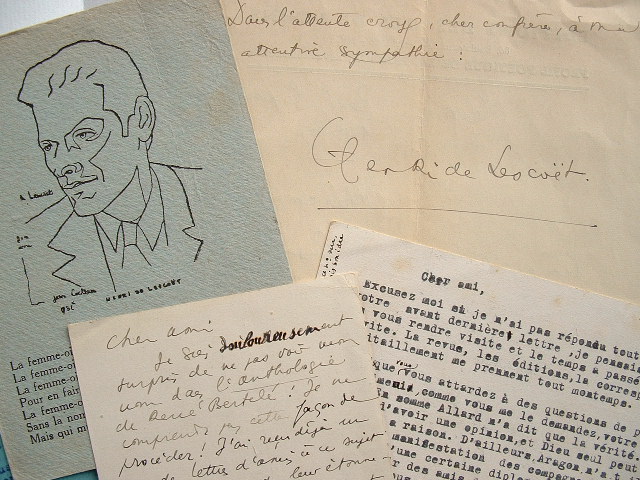 Dans l'attente croyez, cher confrère, à ma
attentive sympathie :
Henri de Lescoët.
à Lescoët
son ami
Jean Cocteau
HENRI DE LESCOËT
La femme-oi
La femme-o
La femme-o
Pour en fair
La femme-o
Sans la nom
Mais qui m
Cher ami
Je suis douloureusement
surpris de ne pas voir mon
nom dans l'anthologie
de René Bertelé ! Je ne
comprends pas cette façon de
procéder ! J'ai reçu déjà un
de lettres d'amis à ce sujet
leur étonne-
Cher ami,
Excusez moi si je n'ai pas répondu tout
votre avant dernière lettre, je pensais
vous rendre visite et le temps a passé
vite. La revue, les éditions, la corresp
itaillement me prennent tout mon temps.
que vous attardez à des questions de p
comme vous me le demandez, votre
En somme Allard m'a dit que la vérité.
d'avoir une opinion, et Dieu seul peut
a raison. D'ailleurs, Aragon n'a t
manifestation des compagne
une certaine diplo
des amis